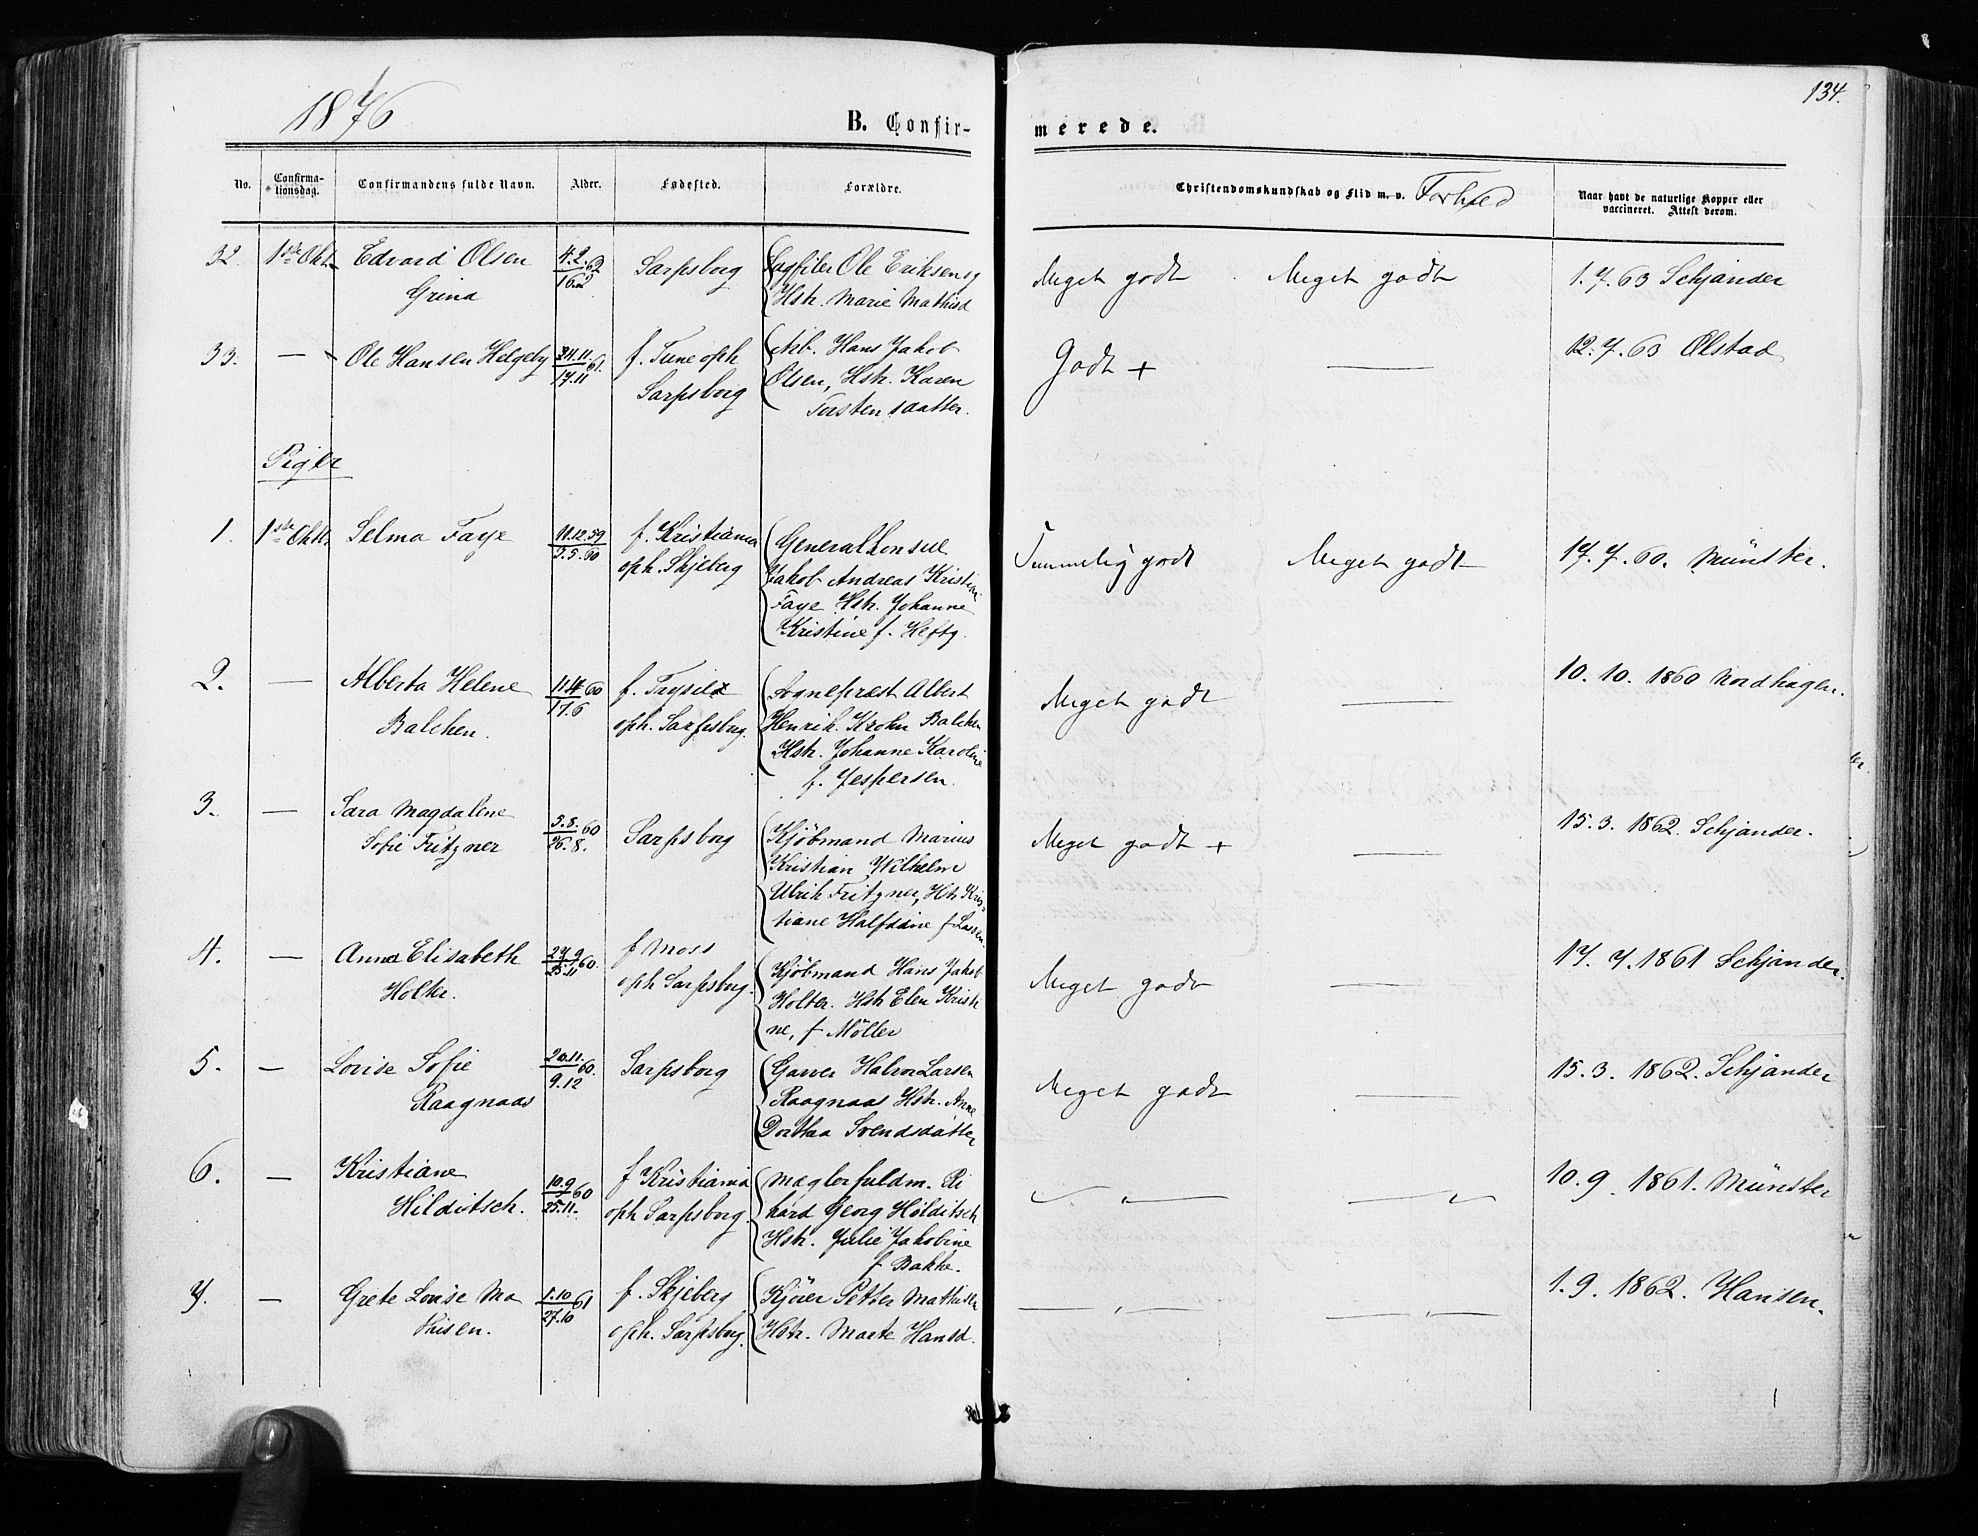 1876
134.
B. Confir-
merede.
No.
Confirma-
tionsdag.
Confirmandens fulde Navn.
Alder.
Fødested.
Forældre.
Christendomskundskab og Flid m. v. Forhold
Naar havt de naturlige Kopper eller
vaccineret. Attest derom.
32. 1ste Okt. Edvard Olsen 4.2.62 Sarpsborg Sagfiler Ole Eriksen og Meget godt Meget godt 1.7.63 Schjander
Grina Hstr. Marie Mathisd
33. — Ole Hansen Helgeby 24.11.61 f. Tune oph Arb. Hans Jakob Godt + — 12.7.63 Ølstad
17.11 Sarpsborg Olsen, Hstr. Karen
Torstensdatter.
Piger
1. 1ste Oktr. Selma Faye 11.12.59 f. Kristiania Generalkonsul Temmelig godt Meget godt 17.7.60. Münster.
5.5.60 oph. Skjeberg Jakob Andreas Kristian
Faye Hstr. Johanne
Kristine f. Hefty.
2. — Alberta Helene 11.4.60 f. Trysild Sogneprest Albert Meget godt — 10.10.1860 Nordhagen.
Balchen. 17.6 oph. Sarpsborg. Henrik Krohn Balchen
Hstr. Johanne Karoline
f. Jespersen.
3. — Sara Magdalene 5.8.60 Sarpsborg Kjöbmand Marius Meget godt + — 15.3.1862. Schjander.
Sofie Fritzner 26.8. Kristian Wilhelm
Ulrik Fritzner, Hstr Kris-
tiane Halfdine f Lassen.
4. — Anna Elisabeth 27.9.60. f Moss Kjöbmand Hans Jakob Meget godt — 17.7.1861 Schjander.
Holter. 25.11 oph Sarpsborg. Holter. Hstr Elen Kristi
ne, f Möller
5. — Lovise Sofie 20.11.60. Sarpsborg Garver Halvor Larsen Meget godt — 15.3.1862. Schjander
Raagnaas 9.12 Raagnaas Hstr. Anne
Dorthea Svendsdatter
6. — Kristiane 10.9.60 f Kristiania Mæglerfuldm. Ri — „ — — „ — 10.9.1861. Münster
Hilditsch. 25.11. oph Sarpsborg. kard Georg Hilditsch
Hstr. Julie Jakobine
f Bakke.
7. — Grete Lovise Ma 1.10.61 f. Skjeberg Kjører Petter Mathisen — „ — — „ — 1.9.1862. Hansen.
thisen. 27.10 oph. Sarpsborg. Hstr. Marte Hansd.